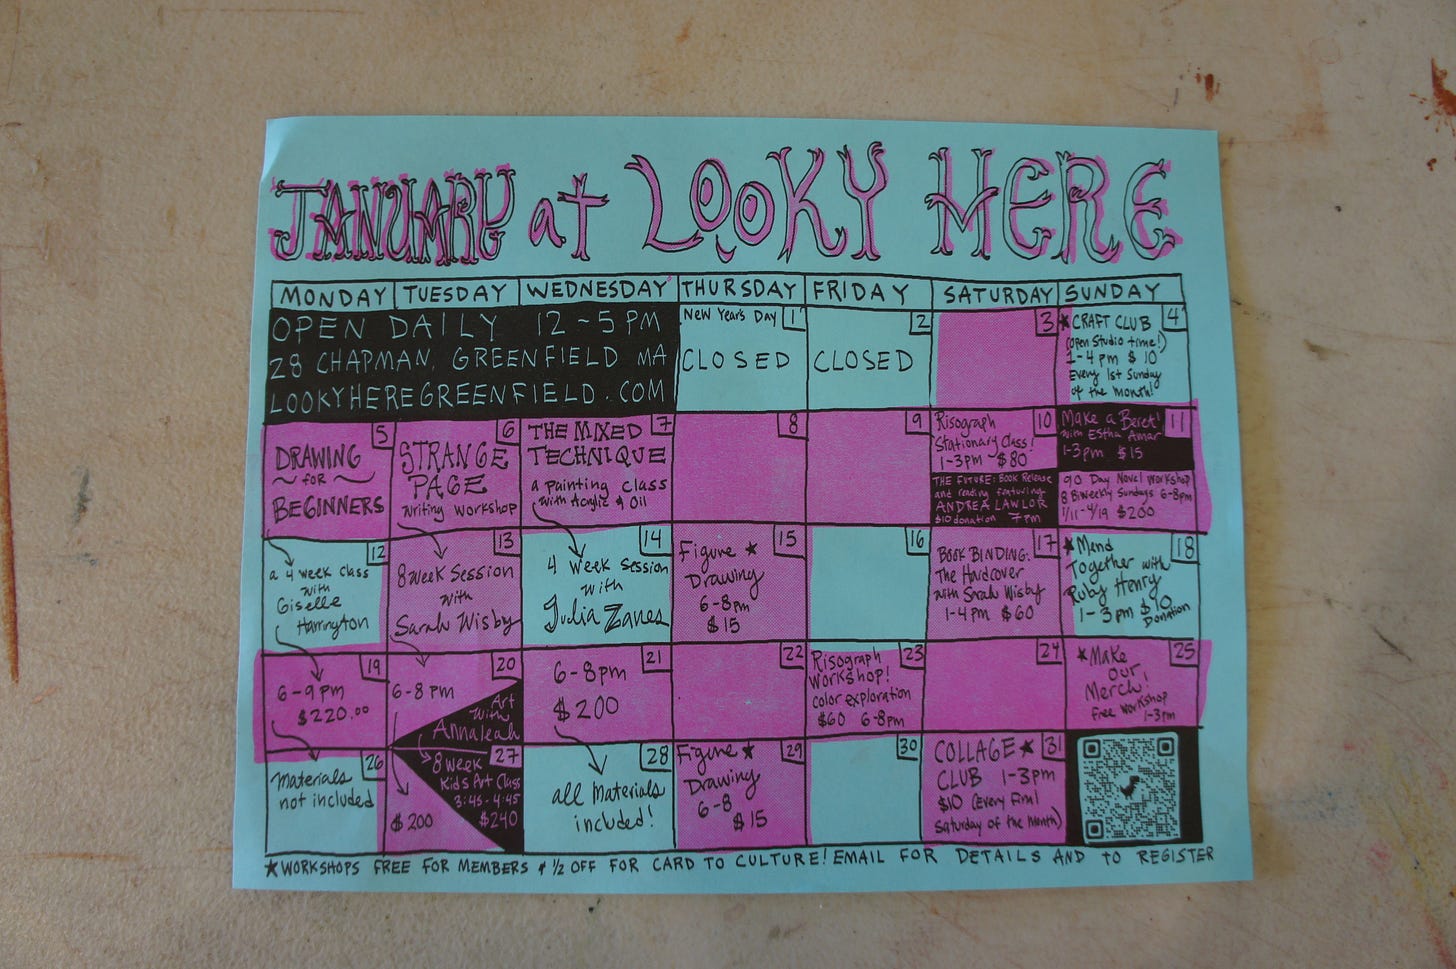 JANUARY at LOOKY HERE
MONDAY TUESDAY WEDNESDAY THURSDAY FRIDAY SATURDAY SUNDAY
OPEN DAILY 12-5 PM
28 CHAPMAN, GREENFIELD MA
LOOKYHEREGREENFIELD.COM
New Year's Day 1
CLOSED
2
CLOSED
3
★CRAFT CLUB 4
(open Studio time!)
1-4 pm $10
Every 1st Sunday
of the Month!
5
DRAWING
~ for ~
BEGINNERS
6
STRANGE
PAGE
Writing Workshop
THE MIXED 7
TECHNIQUE
a painting class
with Acrylic & Oil
8
9
Risograph 10
Stationary Class!
1-3pm $80
THE FUTURE: Book Release
and reading featuring
ANDREA LAWLOR
$10 donation 7pm
Make a Beret! 11
with Estha Amar
1-3pm $15
90 Day Novel Workshop
8 Biweekly Sundays 6-8pm
1/11-4/19 $200
12
a 4 week class
with
Giselle
Harrington
13
8 week Session
with
Sarah Wisby
14
4 Week Session
with
Julia Zanes
15
Figure ★
Drawing
6-8pm
$15
16
17
BOOK BINDING:
The Hardcover
with Sarah Wisby
1-4pm $60
★Mend 18
Together with
Ruby Henry
1-3pm $10
Donation
19
6-9pm
$220.00
20
6-8pm
Art
with
Annaleah
21
6-8pm
$200
22
Risograph 23
Workshop!
color exploration
$60 6-8pm
24
25
★Make
our
Merch!
free workshop
1-3pm
26
Materials
not included
27
$200
8 week
Kids Art Class
3:45-4:45
$240
28
all materials
included!
Figure ★ 29
Drawing
6-8
$15
30
COLLAGE★ 31
CLUB 1-3pm
$10 (Every Final
Saturday of the Month)
★WORKSHOPS FREE FOR MEMBERS & 1/2 OFF FOR CARD TO CULTURE! EMAIL FOR DETAILS AND TO REGISTER